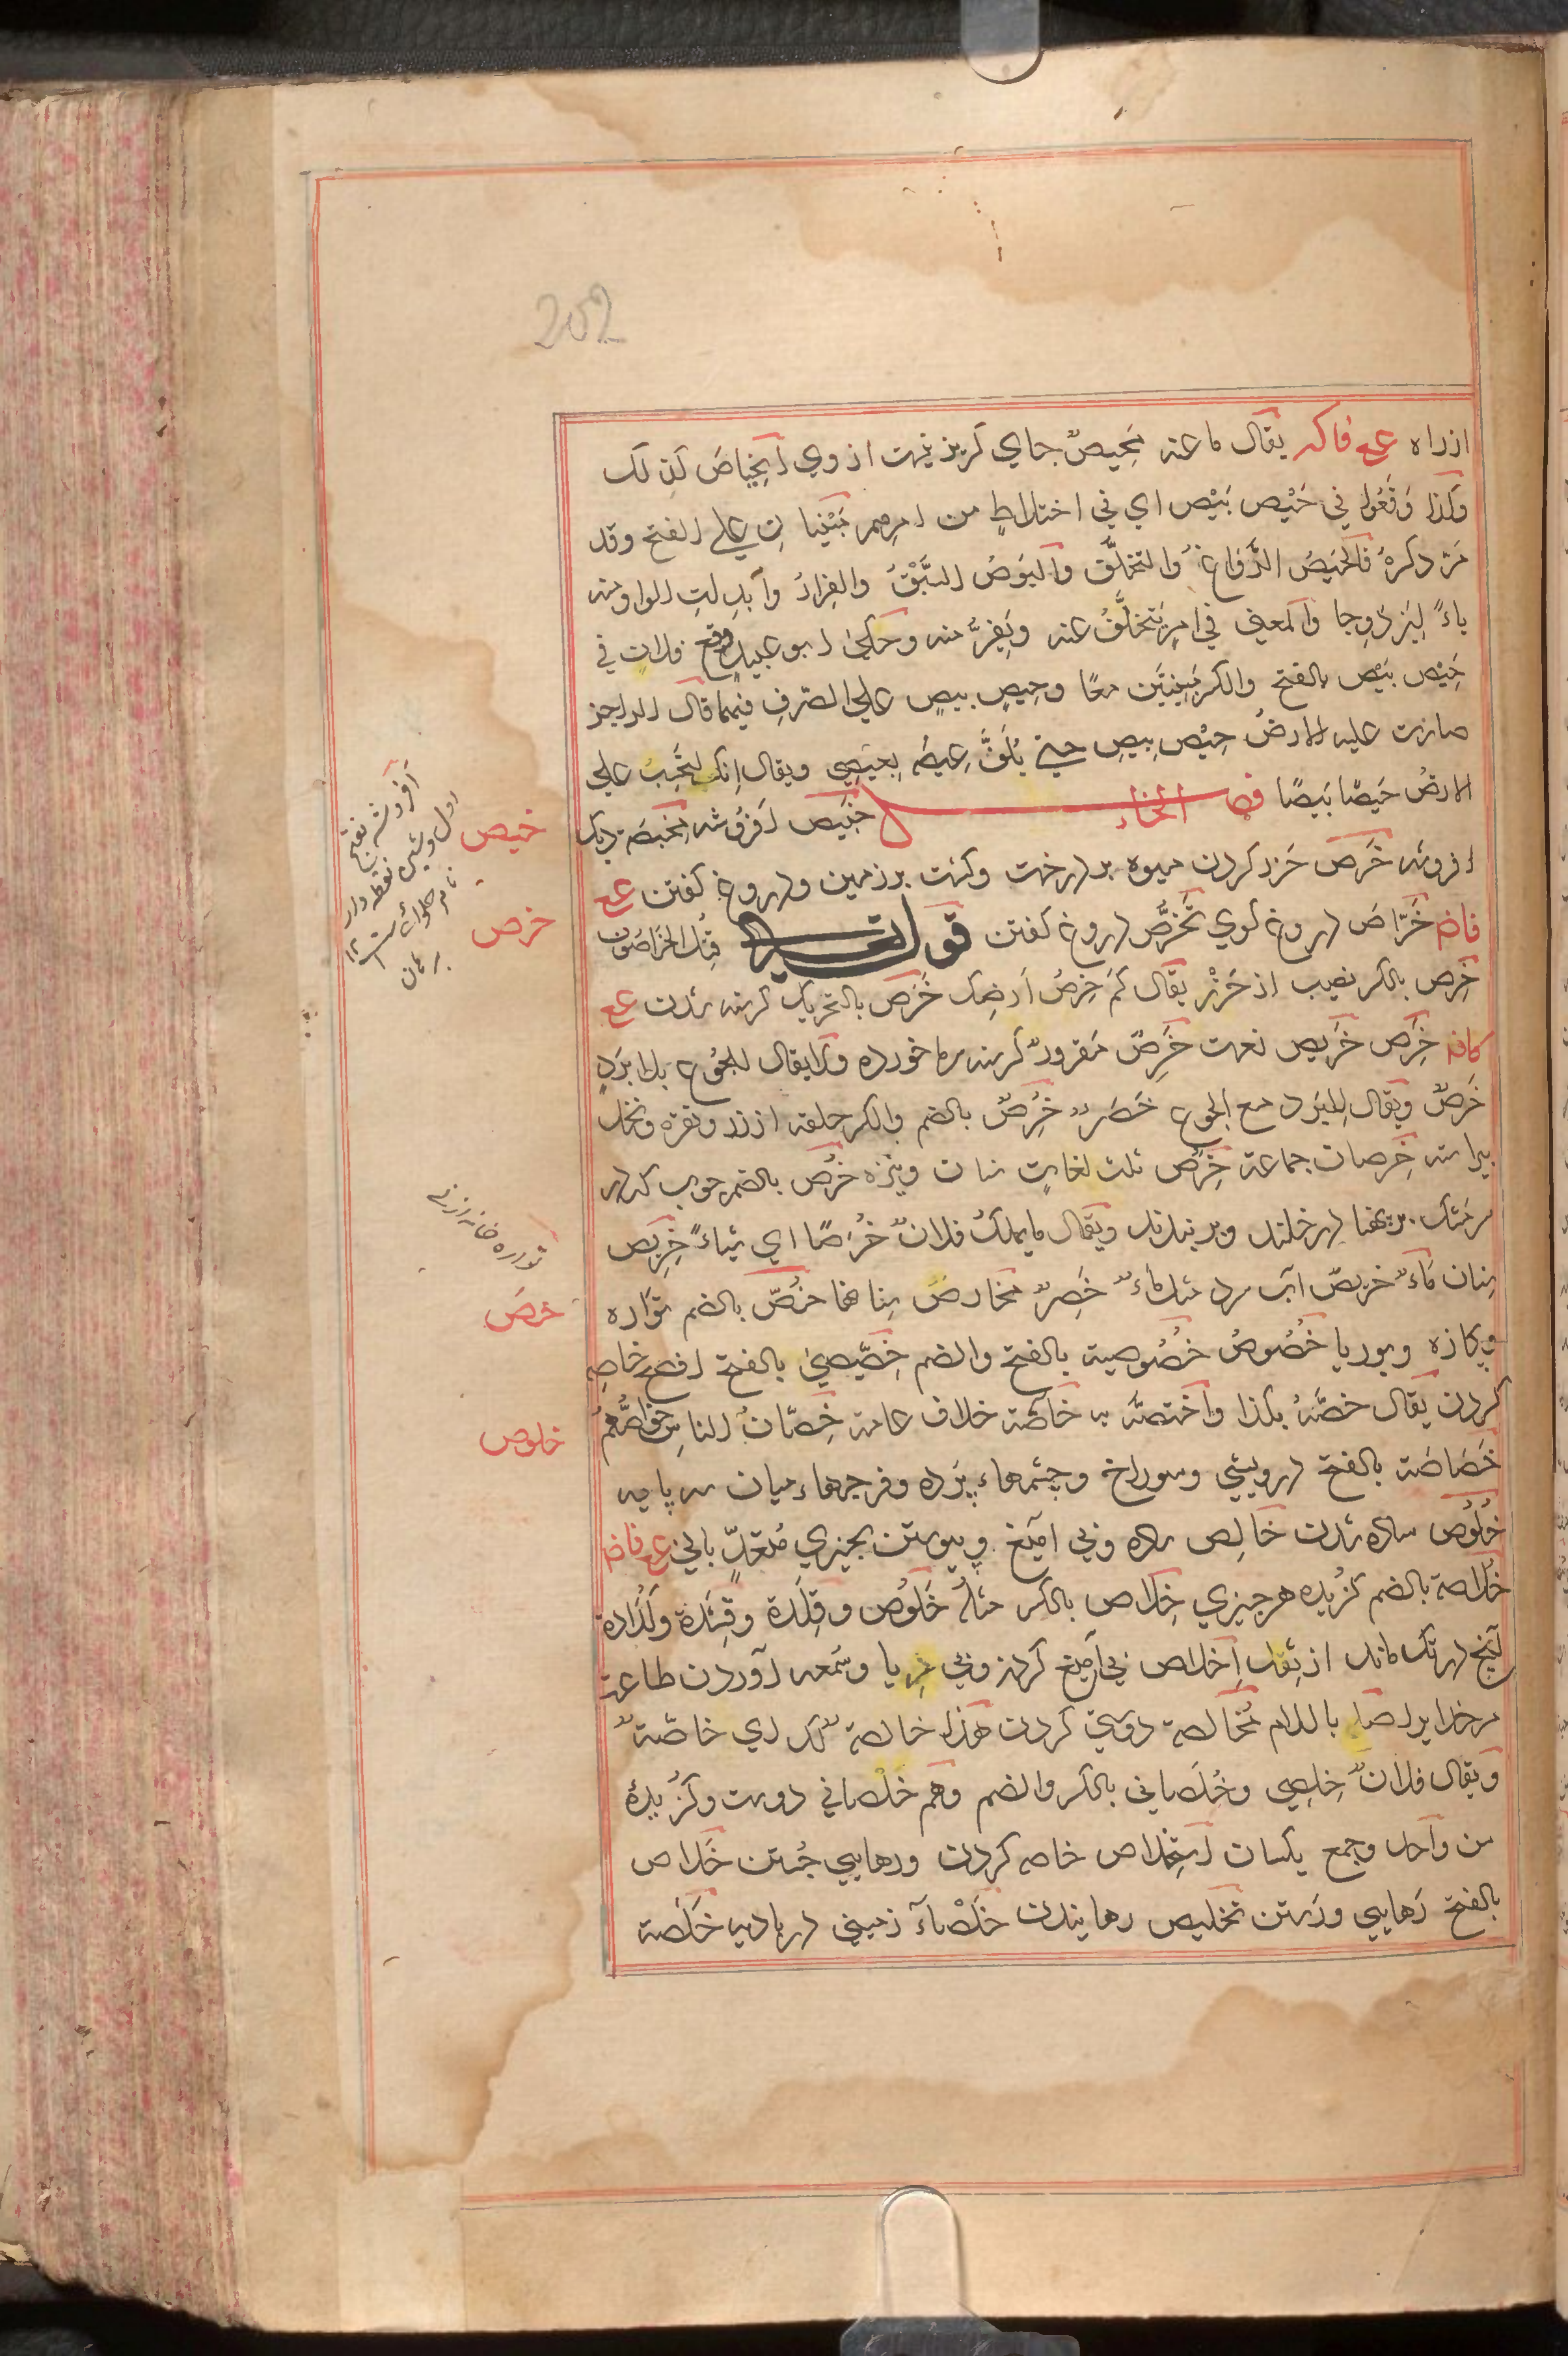 202
ازراه عع فاكه يقال ما عنه مَحِيصٌ جاى كريز نيست ازوى اِنحِياصَ كذلك
وكذا وَقَعُوا في حَيْص بَيْص اى في اختلاطٍ من امرهم مَبْنِيانِ على الفتح وقد
مَرّ ذكرهُ فالحَيصُ الرَّواغُ والتخلُّفُ والبَوصُ السَّبْقُ والفِرارُ وأبدلتِ الواو منه
ياءً لِيَزْدَوِجا والمعنى في امرٍ يَتخلَّفُ عنه ويَفِرُّ منه وحكى ابو عبيدٍ وقع فلانٍ في
حَيْص بَيْص بالفتح والكسر مَبنِيَّين معًا وحيصٍ بيصٍ على الصّرفِ فيهما قال الراجز
صارت عليه الارضُ حِيْص بِيصِ حتى يُلَفَّ عِيصُه بِعيصِى ويقال اِنك لتَحْسِبُ على
الارضُ حَيصًا بَيصًا فصل الخاء خبيص افروشه مِخبَصَة ديك
افروشه خرص حَزر كردن ميوه بر درخت وكشت بر زمين ودروغ كفتن عع
فاض خَرّاص دروغ كوى تَخَرُّص دروغ كفتن قوله تعالى قُتِل الخَرّاصُون
خِرص بالكسر نصيب از حَزْر يقال كَم خِرصُ اَرضِك خَرَص بالتحريك كرسنه شدن عع
كافه خَرِص خَريص نعت خَرِصٌ مَقرورٌ كرسنه سرما خورده ولا يقال للجُوع بلا بَرَدٍ
خَرَصٌ ويقال لِلبَرَد مع الجوع خَصَرٌ خُرْصٌ بالضم والكسر حلقه از زر ونقره ونخل
پيراسته خرصان جماعة خرص ثلث لغاتٍ سنان ونيزه خُرْص بالضم چوب كه در
سرمشك بربهنا درخلند وبر بندند ويقال ما يملك فلانٌ خُرصًا اى شياءً خريص
سنان ماءٌ خريصٌ آب سرد مثل ماءٌ خَصِرٌ مخارصُ سنانها خُصّ بالضم تواره
وكازه وبوريا خُصُوصُ خُصُوصية بالفتح والضم خِصّيصى بالفتح افصح خاصه
كردن يقال خصَّهُ بكذا واختصَّه به خاصّة خلاف عامة خِصّانُ الناسِ خواصُّهم
خَصَاصَة بالفتح درويشى وسوراخ وچشمهاء پرده وفرجهاء ميان سه پايه
خُلُوص ساده شدن خالِص ساده وبى آميغ وپيوستن بچيزى مُتعَدٍّ بالى عع فاض
خُلاصة بالضم كزيده هر چيزى خِلاص بالكسر مثله خَلُوص وقِلدَة وقِشدَة وكُدادة
آنچ در تك ماند از ثفل اِخلاص بى آميغ كردن وبى ريا وسُمعه آوردن طاعة
مر خدايرا صلہ باللام مُخالصة دوستى كردن هذا خالصةٌ لك اى خاصّةٌ
ويقال فلانٌ خِلصى وخُلصانى بالكسر والضم وهم خُلصانى دوست وكزيدهٔ
من واحد وجمع يكسان استِخلاص خاصه كردن ورهايى جُستن خَلاص
بالفتح رَهايى ورَستن تخليص رهانيدن خَلْصاءَ زمينى در باديه خَلَصة
خبيص
آفروشه بفتح
اول وشين نقطه دار
نام حلوائيست
برهان
خرص
خص
خلوص